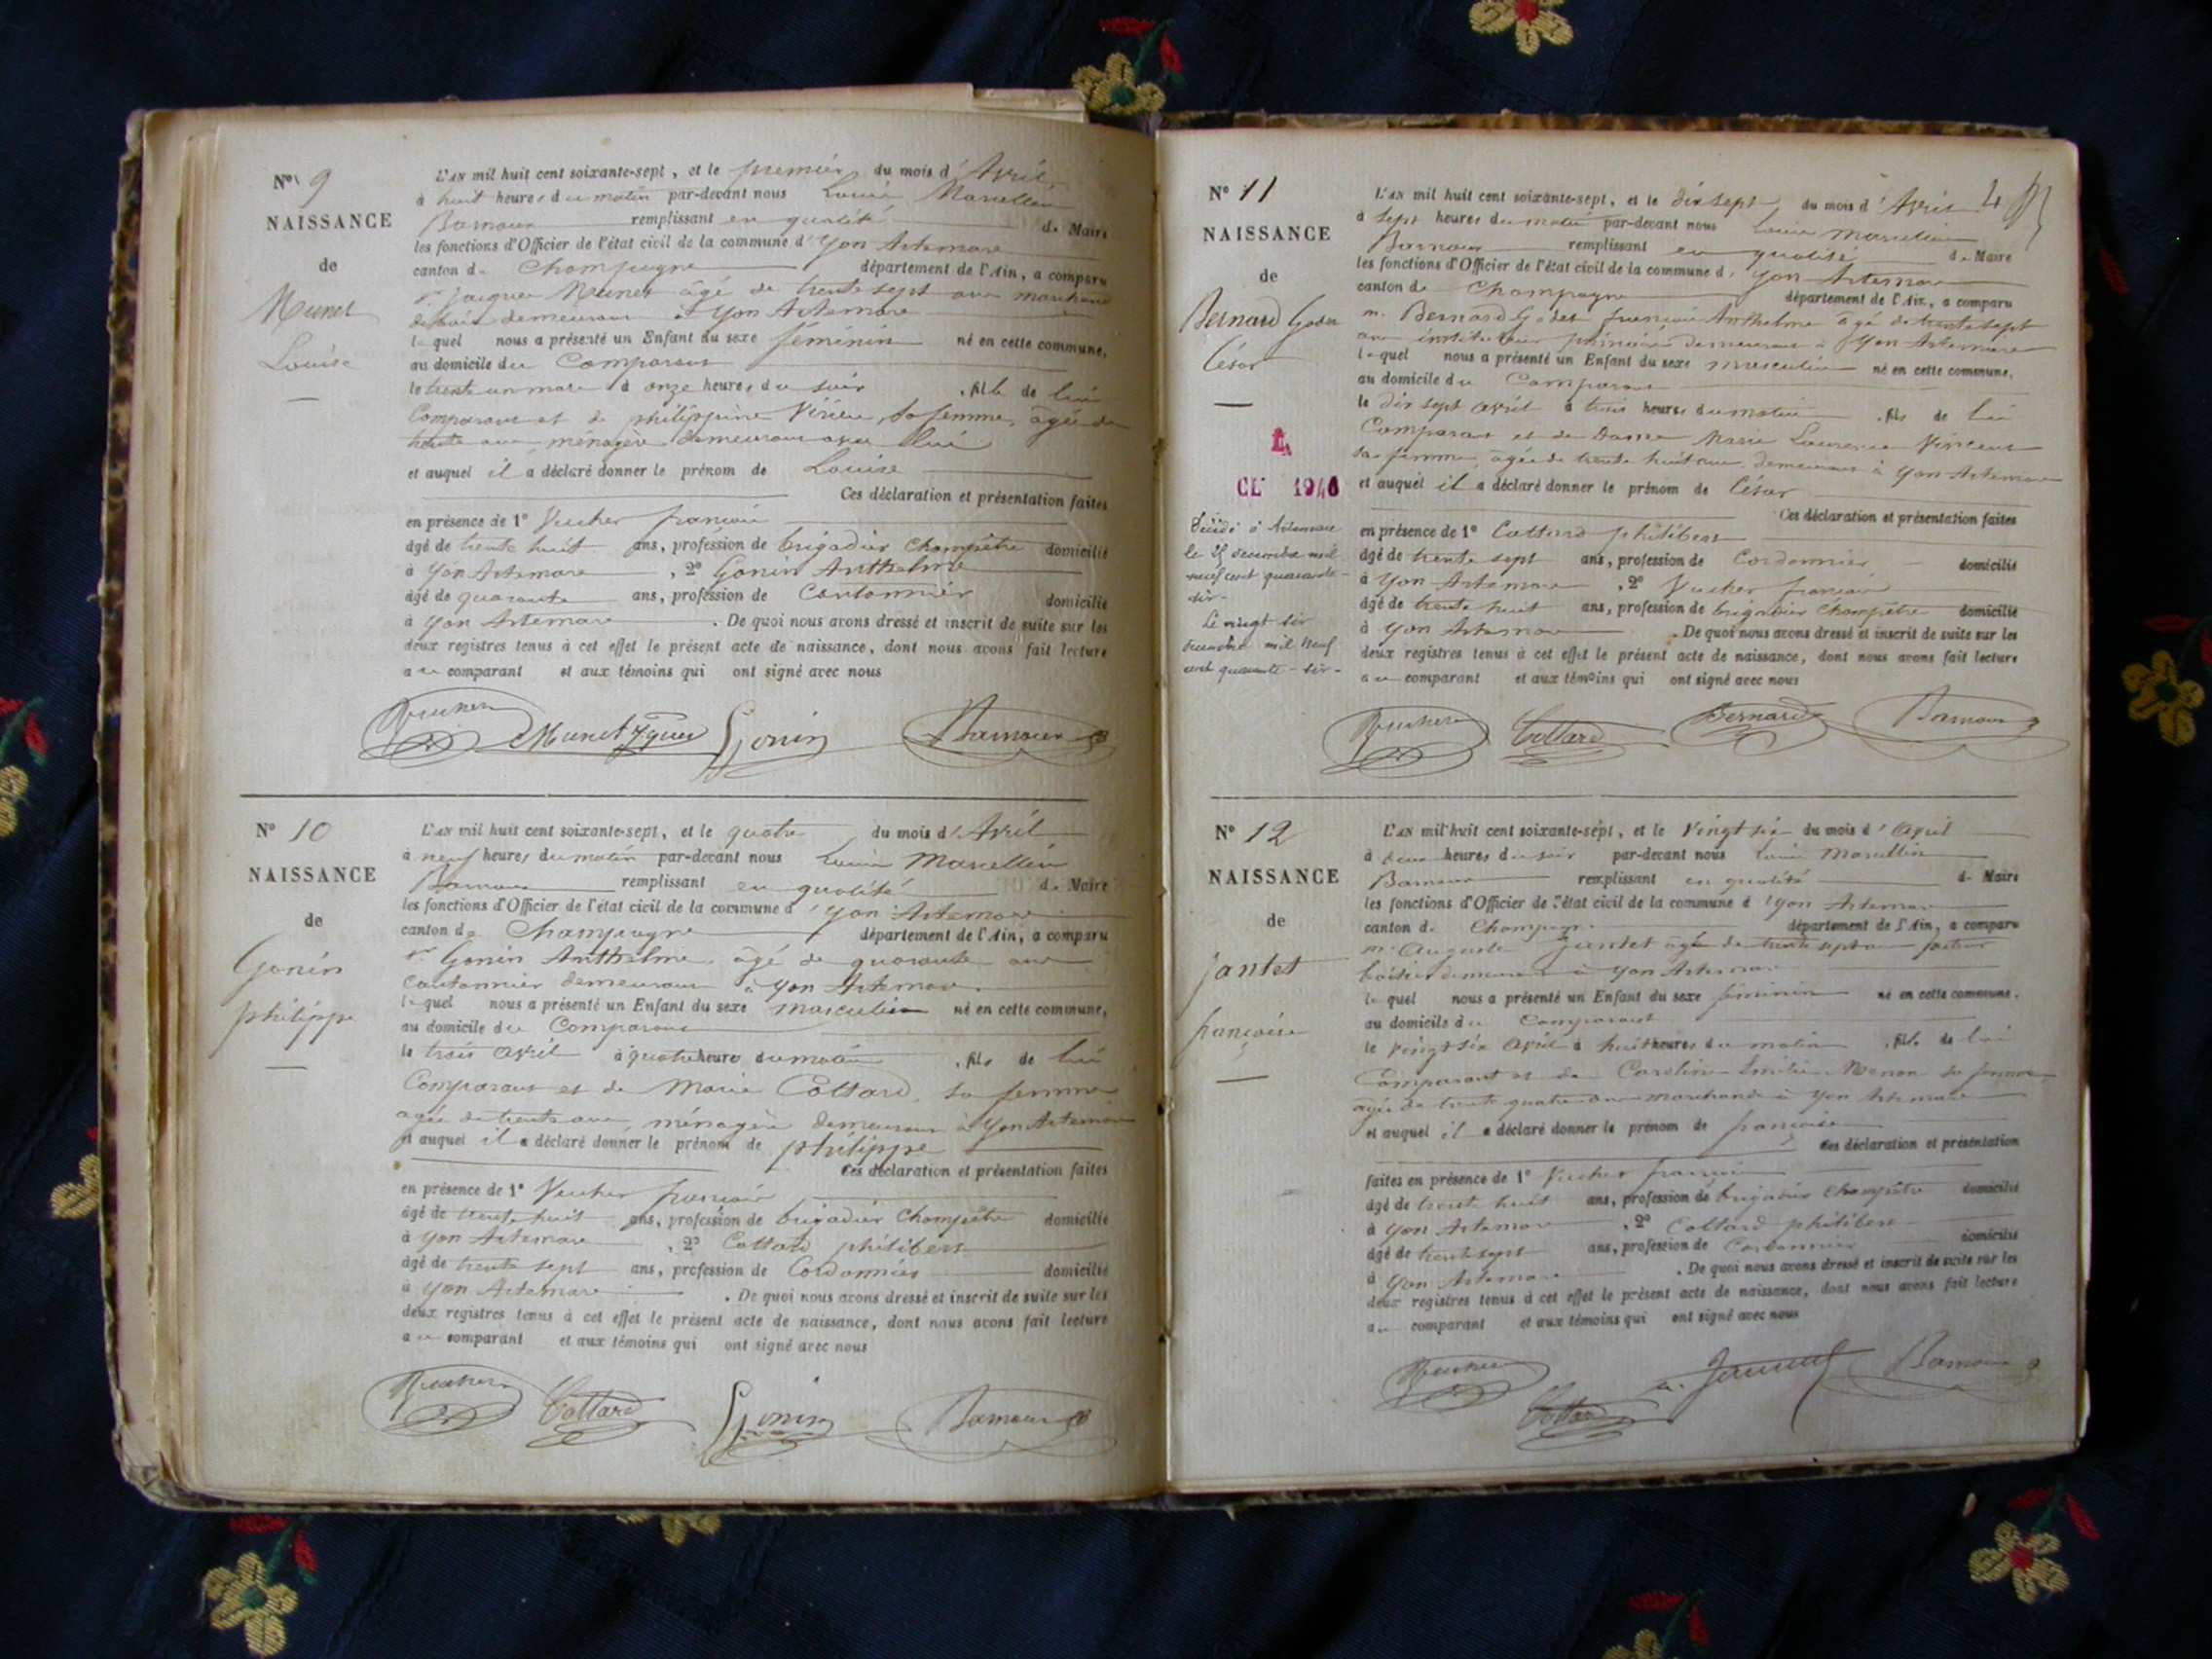 N° 9
NAISSANCE
de
Munet
Louise
L'AN mil huit cent soixante-sept, et le premier du mois d'Avril
à huit heures du matin par-devant nous Louis Marcellin
remplissant en qualité de Maire
les fonctions d'Officier de l'état civil de la commune d'Yon Artemare
canton de Champagne département de l'Ain, a comparu
Sr Jacques Munet âgé de trente sept ans marchand
de bois demeurant à Yon Artemare
lequel nous a présenté un Enfant du sexe féminin né en cette commune,
au domicile du Comparant
le trente un mars à onze heures du soir, fille de lui
Comparant et de philippine Virieu, sa femme, âgée de
trente ans ménagère demeurant avec lui
et auquel il a déclaré donner le prénom de Louise
Ces déclaration et présentation faites
en présence de 1° Vucher françois
âgé de trente huit ans, profession de brigadier Champêtre domicilié
à Yon Artemare, 2° Gonin Anthelme
âgé de quarante ans, profession de Cantonnier domicilié
à Yon Artemare. De quoi nous avons dressé et inscrit de suite sur les
deux registres tenus à cet effet le présent acte de naissance, dont nous avons fait lecture
au comparant et aux témoins qui ont signé avec nous
Vucher Munet Gonin
N° 10
NAISSANCE
de
Gonin
philippe
L'AN mil huit cent soixante-sept, et le quatre du mois d'Avril
à neuf heures du matin par-devant nous Louis Marcellin
remplissant en qualité de Maire
les fonctions d'Officier de l'état civil de la commune d'Yon Artemare
canton de Champagne département de l'Ain, a comparu
Sr Gonin Anthelme, âgé de quarante ans
Cantonnier demeurant à Yon Artemare
lequel nous a présenté un Enfant du sexe masculin né en cette commune,
au domicile du Comparant
le trois avril à quatre heures du matin, fils de lui
Comparant et de Marie Cottard, sa femme
âgée de trente ans, ménagère demeurant à Yon Artemare
et auquel il a déclaré donner le prénom de philippe
Ces déclaration et présentation faites
en présence de 1° Vucher françois
âgé de trente huit ans, profession de brigadier Champêtre domicilié
à Yon Artemare, 2° Cottard philibert
âgé de trente sept ans, profession de Cordonnier domicilié
à Yon Artemare. De quoi nous avons dressé et inscrit de suite sur les
deux registres tenus à cet effet le présent acte de naissance, dont nous avons fait lecture
au comparant et aux témoins qui ont signé avec nous
Vucher Cottard Gonin
N° 11
NAISSANCE
de
Bernard Godet
César
CL 1946
Décédé à Artemare
le 25 décembre mil
neuf cent quarante-
six-
Le vingt six
décembre mil neuf
cent quarante-six-
L'AN mil huit cent soixante-sept, et le dix sept du mois d'Avril 4
à sept heures du matin par-devant nous Louis Marcellin
remplissant en qualité de Maire
les fonctions d'Officier de l'état civil de la commune d'Yon Artemare
canton de Champagne département de l'Ain, a comparu
m. Bernard Godet françois Anthelme âgé de trente sept
ans instituteur primaire demeurant à Yon Artemare
lequel nous a présenté un Enfant du sexe masculin né en cette commune,
au domicile du Comparant
le dix sept avril à trois heures du matin, fils de lui
Comparant et de Dame Marie Laurence Vincent
sa femme, âgée de trente huit ans, demeurant à Yon Artemare
et auquel il a déclaré donner le prénom de César
Ces déclaration et présentation faites
en présence de 1° Cottard philibert
âgé de trente sept ans, profession de Cordonnier domicilié
à Yon Artemare, 2° Vucher françois
âgé de trente huit ans, profession de brigadier Champêtre domicilié
à Yon Artemare. De quoi nous avons dressé et inscrit de suite sur les
deux registres tenus à cet effet le présent acte de naissance, dont nous avons fait lecture
au comparant et aux témoins qui ont signé avec nous
Vucher Cottard Bernard
N° 12
NAISSANCE
de
jantet
françoise
L'AN mil huit cent soixante-sept, et le vingt six du mois d'avril
à deux heures du soir par-devant nous Louis Marcellin
remplissant en qualité de Maire
les fonctions d'Officier de l'état civil de la commune d'Yon Artemare
canton de Champagne département de l'Ain, a comparu
m. Auguste jantet âgé de trente sept ans facteur
boitier demeurant à Yon Artemare
lequel nous a présenté un Enfant du sexe féminin né en cette commune,
au domicile du Comparant
le vingt six avril à huit heures du matin, fille de lui
Comparant et de Caroline Emilie Menon sa femme
âgée de trente quatre ans marchande à Yon Artemare
et auquel il a déclaré donner le prénom de françoise
Ces déclaration et présentation
faites en présence de 1° Vucher françois
âgé de trente huit ans, profession de brigadier Champêtre domicilié
à Yon Artemare, 2° Cottard philibert
âgé de trente sept ans, profession de Cordonnier domicilié
à Yon Artemare. De quoi nous avons dressé et inscrit de suite sur les
deux registres tenus à cet effet le présent acte de naissance, dont nous avons fait lecture
au comparant et aux témoins qui ont signé avec nous
Vucher Cottard